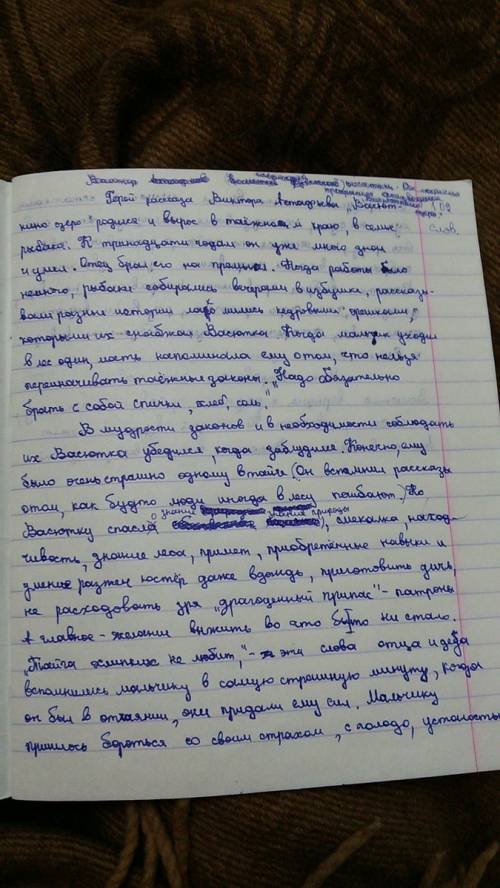 Герой рассказа Виктора Астафьева "Васют-
кино озеро родился и вырос в таёжном краю, в семье
рыбака. К тринадцати годам он уже много знал
и умел. Отец брал его на промысел. Когда работы было
немного, рыбаки собирались вечерами в избушке, рассказы-
вали разные истории лакомились кедровыми орешками,
которыми их снабжал Васютка. Когда мальчик уходил
в лес один, мать напоминала ему о том, что нельзя
переиначивать таёжные законы. "Надо обязательно
брать с собой спички, хлеб, соль."
В мудрости законов и в необходимости соблюдать
их Васютка убедился, когда заблудился. Конечно, ему
было очень страшно одному в тайге (Он вспомнил рассказы
о том, как будто люди иногда в лесу погибают.) Но
Васютку спасло знание природы, смекалка, наход-
чивость, знание леса, примет, приобретённые навыки и
умение разжечь костёр даже в дождь, приготовить дичь,
не расходовать зря "драгоценный припас" - патроны
А главное - желание выжить во что бы то ни стало.
"Тайга хлипких не любит," - эти слова отца и деда
вспомнились мальчику в самую страшную минуту, когда
он был в отчаянии, они придали ему сил. Мальчику
пришлось бороться со своим страхом, с голодо, усталостью